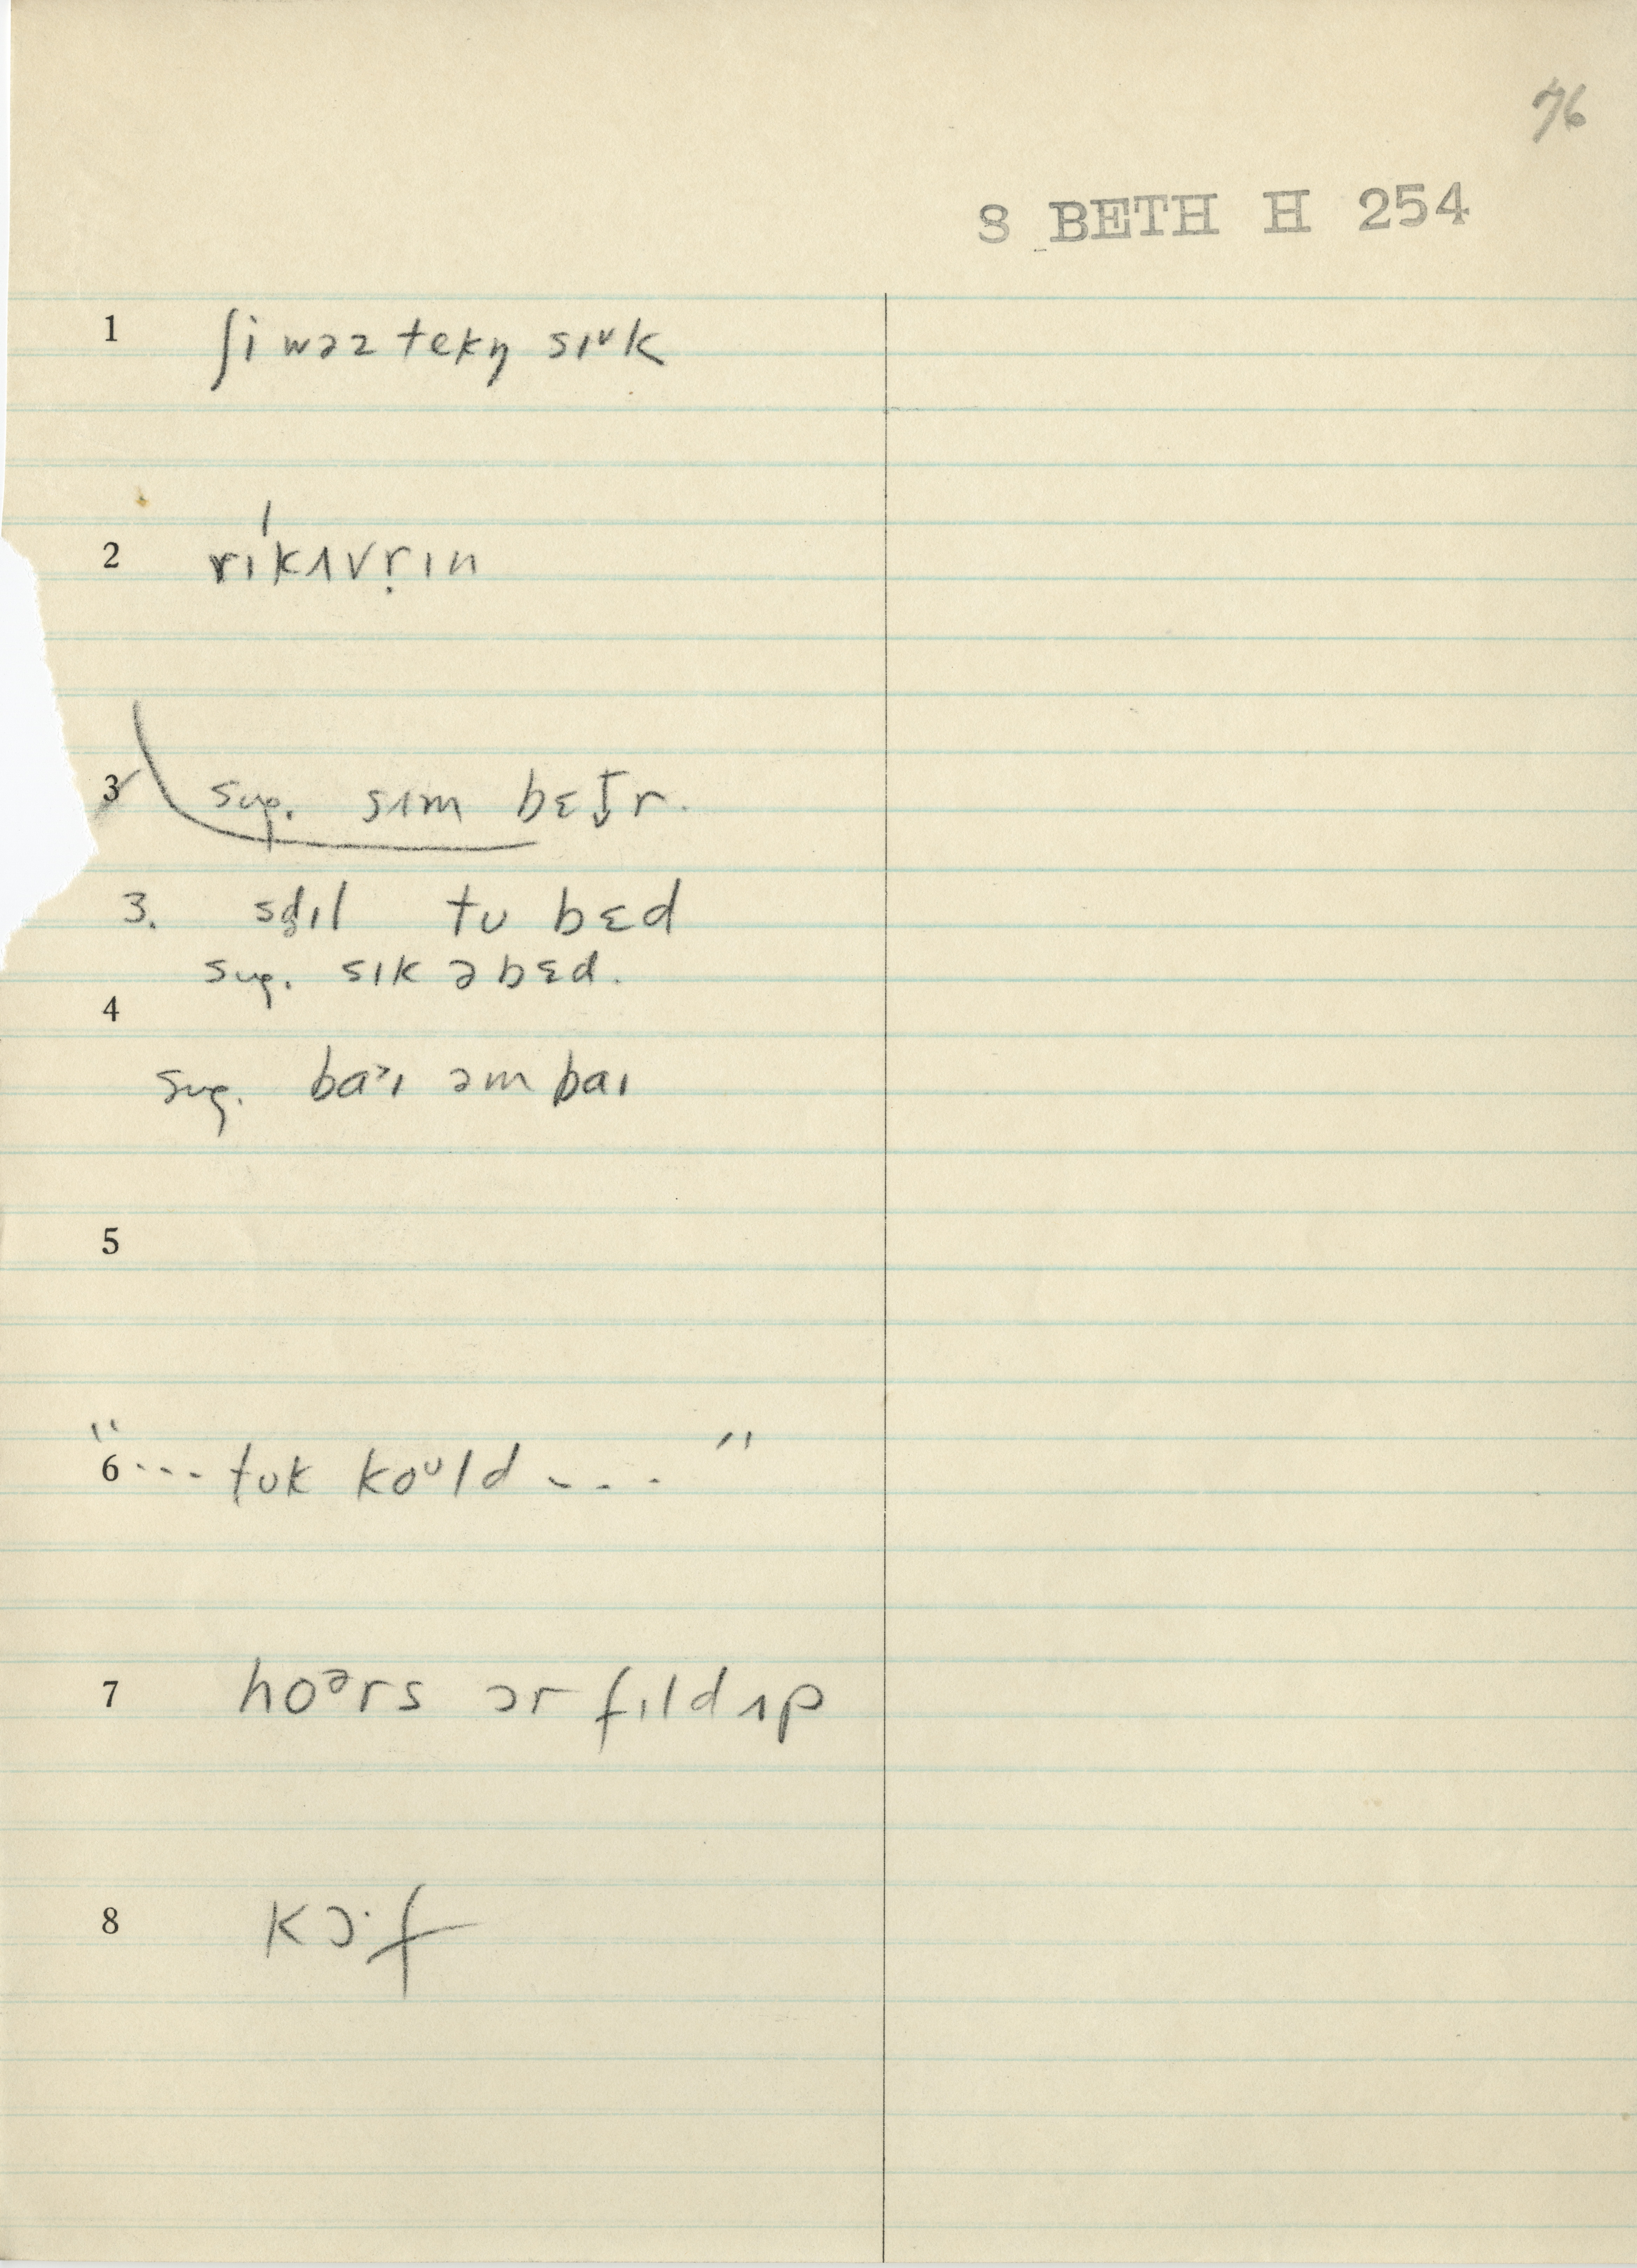 76
S BETH H 254
1 ʃi wəz tekŋ sɪᶷk
2 ríkʌvr̩ɪn
3 sug. sʌm bɛt̬r.
3. sd̥ɪl tʊ bɛd
sug. sɪk əbɛd.
4
sug. baᵊɪ əm baɪ
5
"
6 --- tʊk koᶷld --- "
7 hoᵊrs ɔr fɪld ʌp
8 kɔ·f